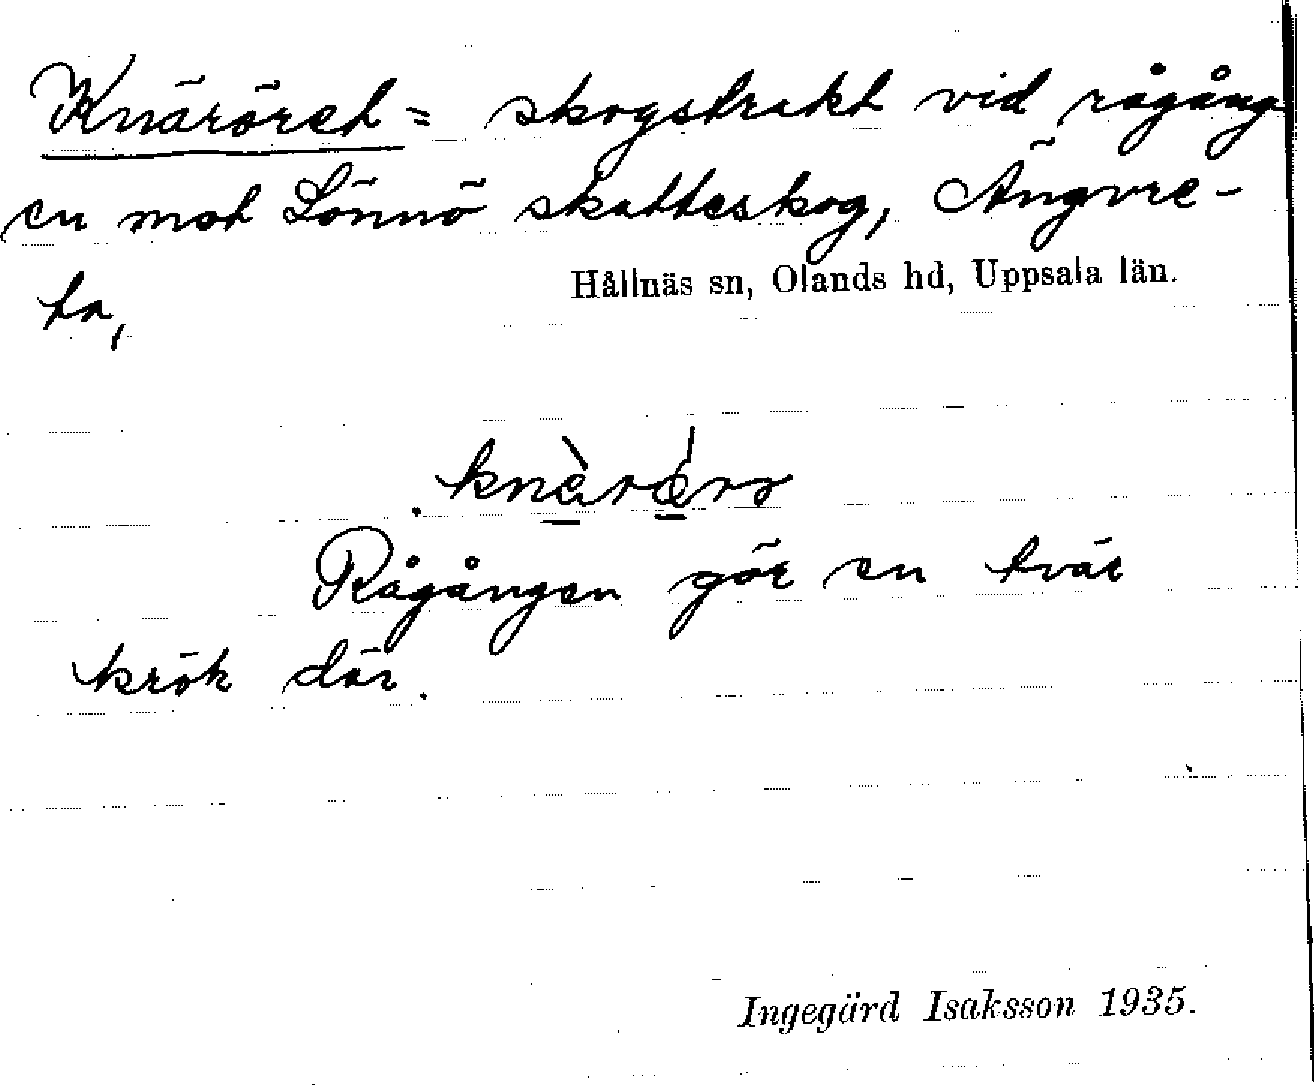 Knäröret = skogstrakt vid rågång
en mot Lönnö skatteskog, Ängvre-
ta,
Hållnäs sn, Olands hd, Uppsala län.
Rågången gör en tvär
krök där.
Ingegärd Isaksson 1935.